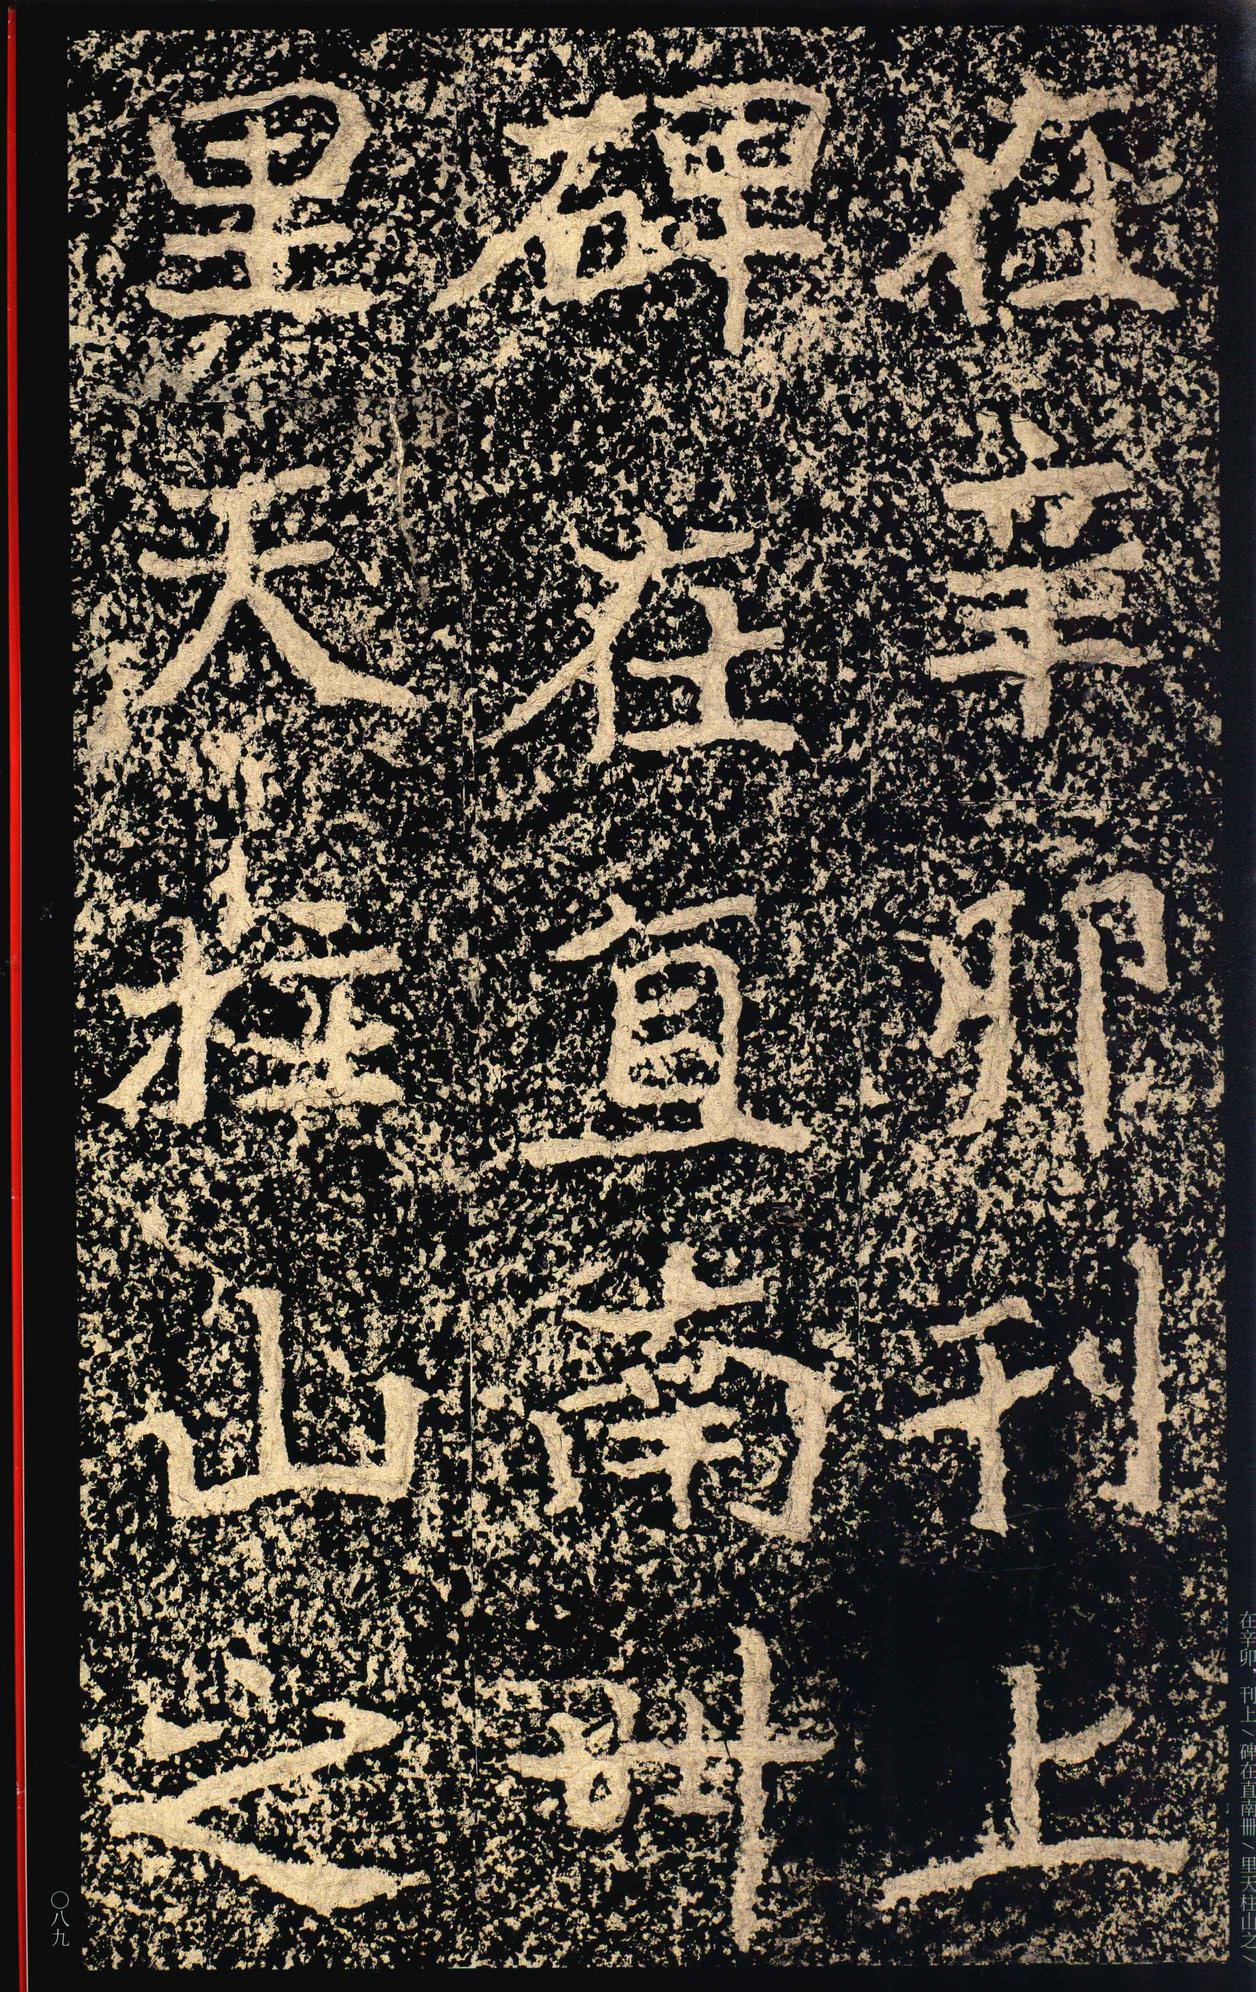 在辛卯刊上
碑在直南卌
里天柱山之
在辛卯 刊上／碑在直南卌／里天柱山之／
〇八九